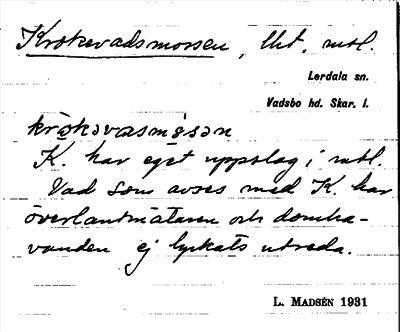 Krokevadsmossen, Uet, mtl.
Lerdala sn.
Vadsbo hd. Skar. l.
krὰkəvasmɷsən
K. har eget uppslag i mtl.
Vad som avses med K. har
överlantmätaren och domha-
vanden ej lyckats utreda.
L. MADSÉN 1931